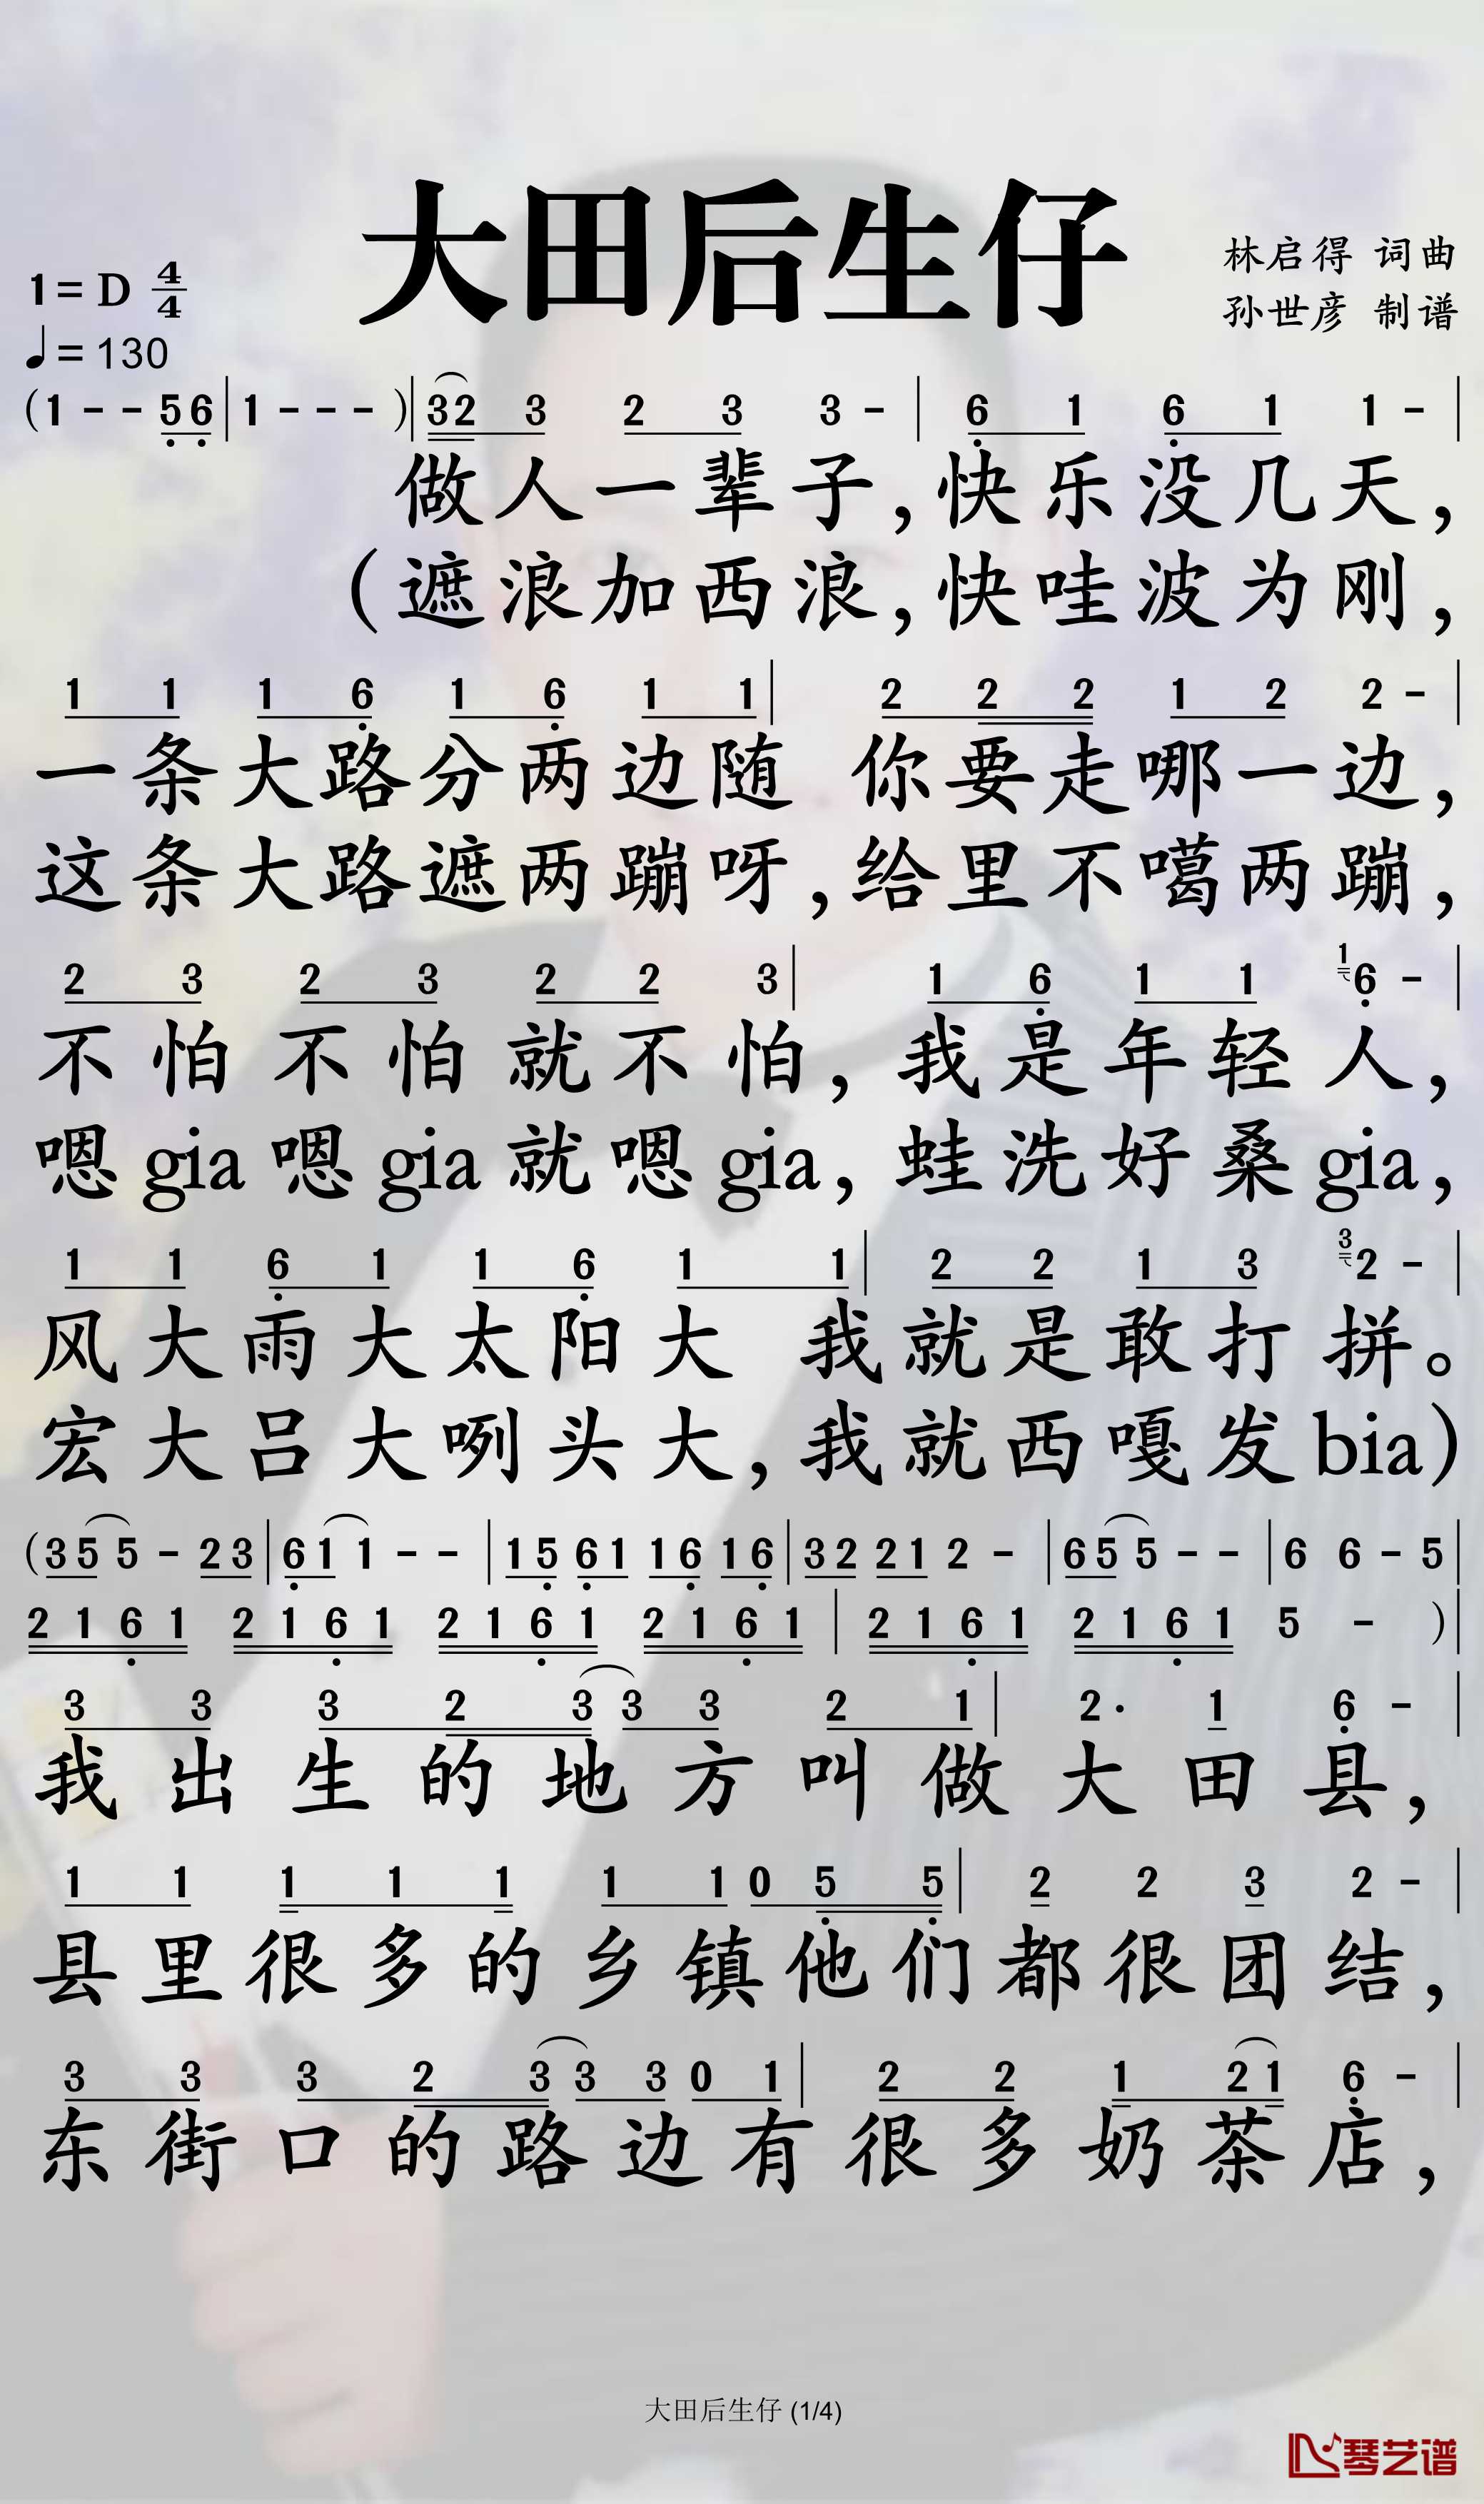 大田后生仔
林启得 词曲
孙世彦 制谱
1=D 4/4
♩=130
(1 - - 5 6 | 1 - - - )| 32 3 2 3 3 - | 6 1 6 1 1 - |
做人一辈子,快乐没几天,
(遮浪加西浪,快哇波为刚,
1 1 1 6 1 6 1 1 | 2 2 2 1 2 2 - |
一条大路分两边随 你要走哪一边,
这条大路遮两蹦呀,给里不噶两蹦,
2 3 2 3 2 2 3 | 1 6 1 1 1 6 - |
不怕不怕就不怕,我是年轻人,
嗯gia嗯gia就嗯gia,蛙洗好桑gia,
1 1 6 1 1 6 1 1 | 2 2 1 3 3 2 - |
风大雨大太阳大 我就是敢打拼。
宏大吕大咧头大,我就西嘎发bia)
(3 5 5 - 2 3 | 6 1 1 - - | 1 5 6 1 1 6 1 6 | 3 2 2 1 2 - | 6 5 5 - - | 6 6 - 5 |
2 1 6 1 2 1 6 1 2 1 6 1 2 1 6 1 | 2 1 6 1 2 1 6 1 5 - )|
3 3 3 2 3 3 3 2 1 | 2· 1 6 - |
我出生的地方叫做大田县,
1 1 1 1 1 1 1 0 5 5 | 2 2 3 2 - |
县里很多的乡镇他们都很团结,
3 3 3 2 3 3 3 0 1 | 2 2 1 2 1 6 - |
东街口的路边有很多奶茶店,
大田后生仔 (1/4)
琴艺谱